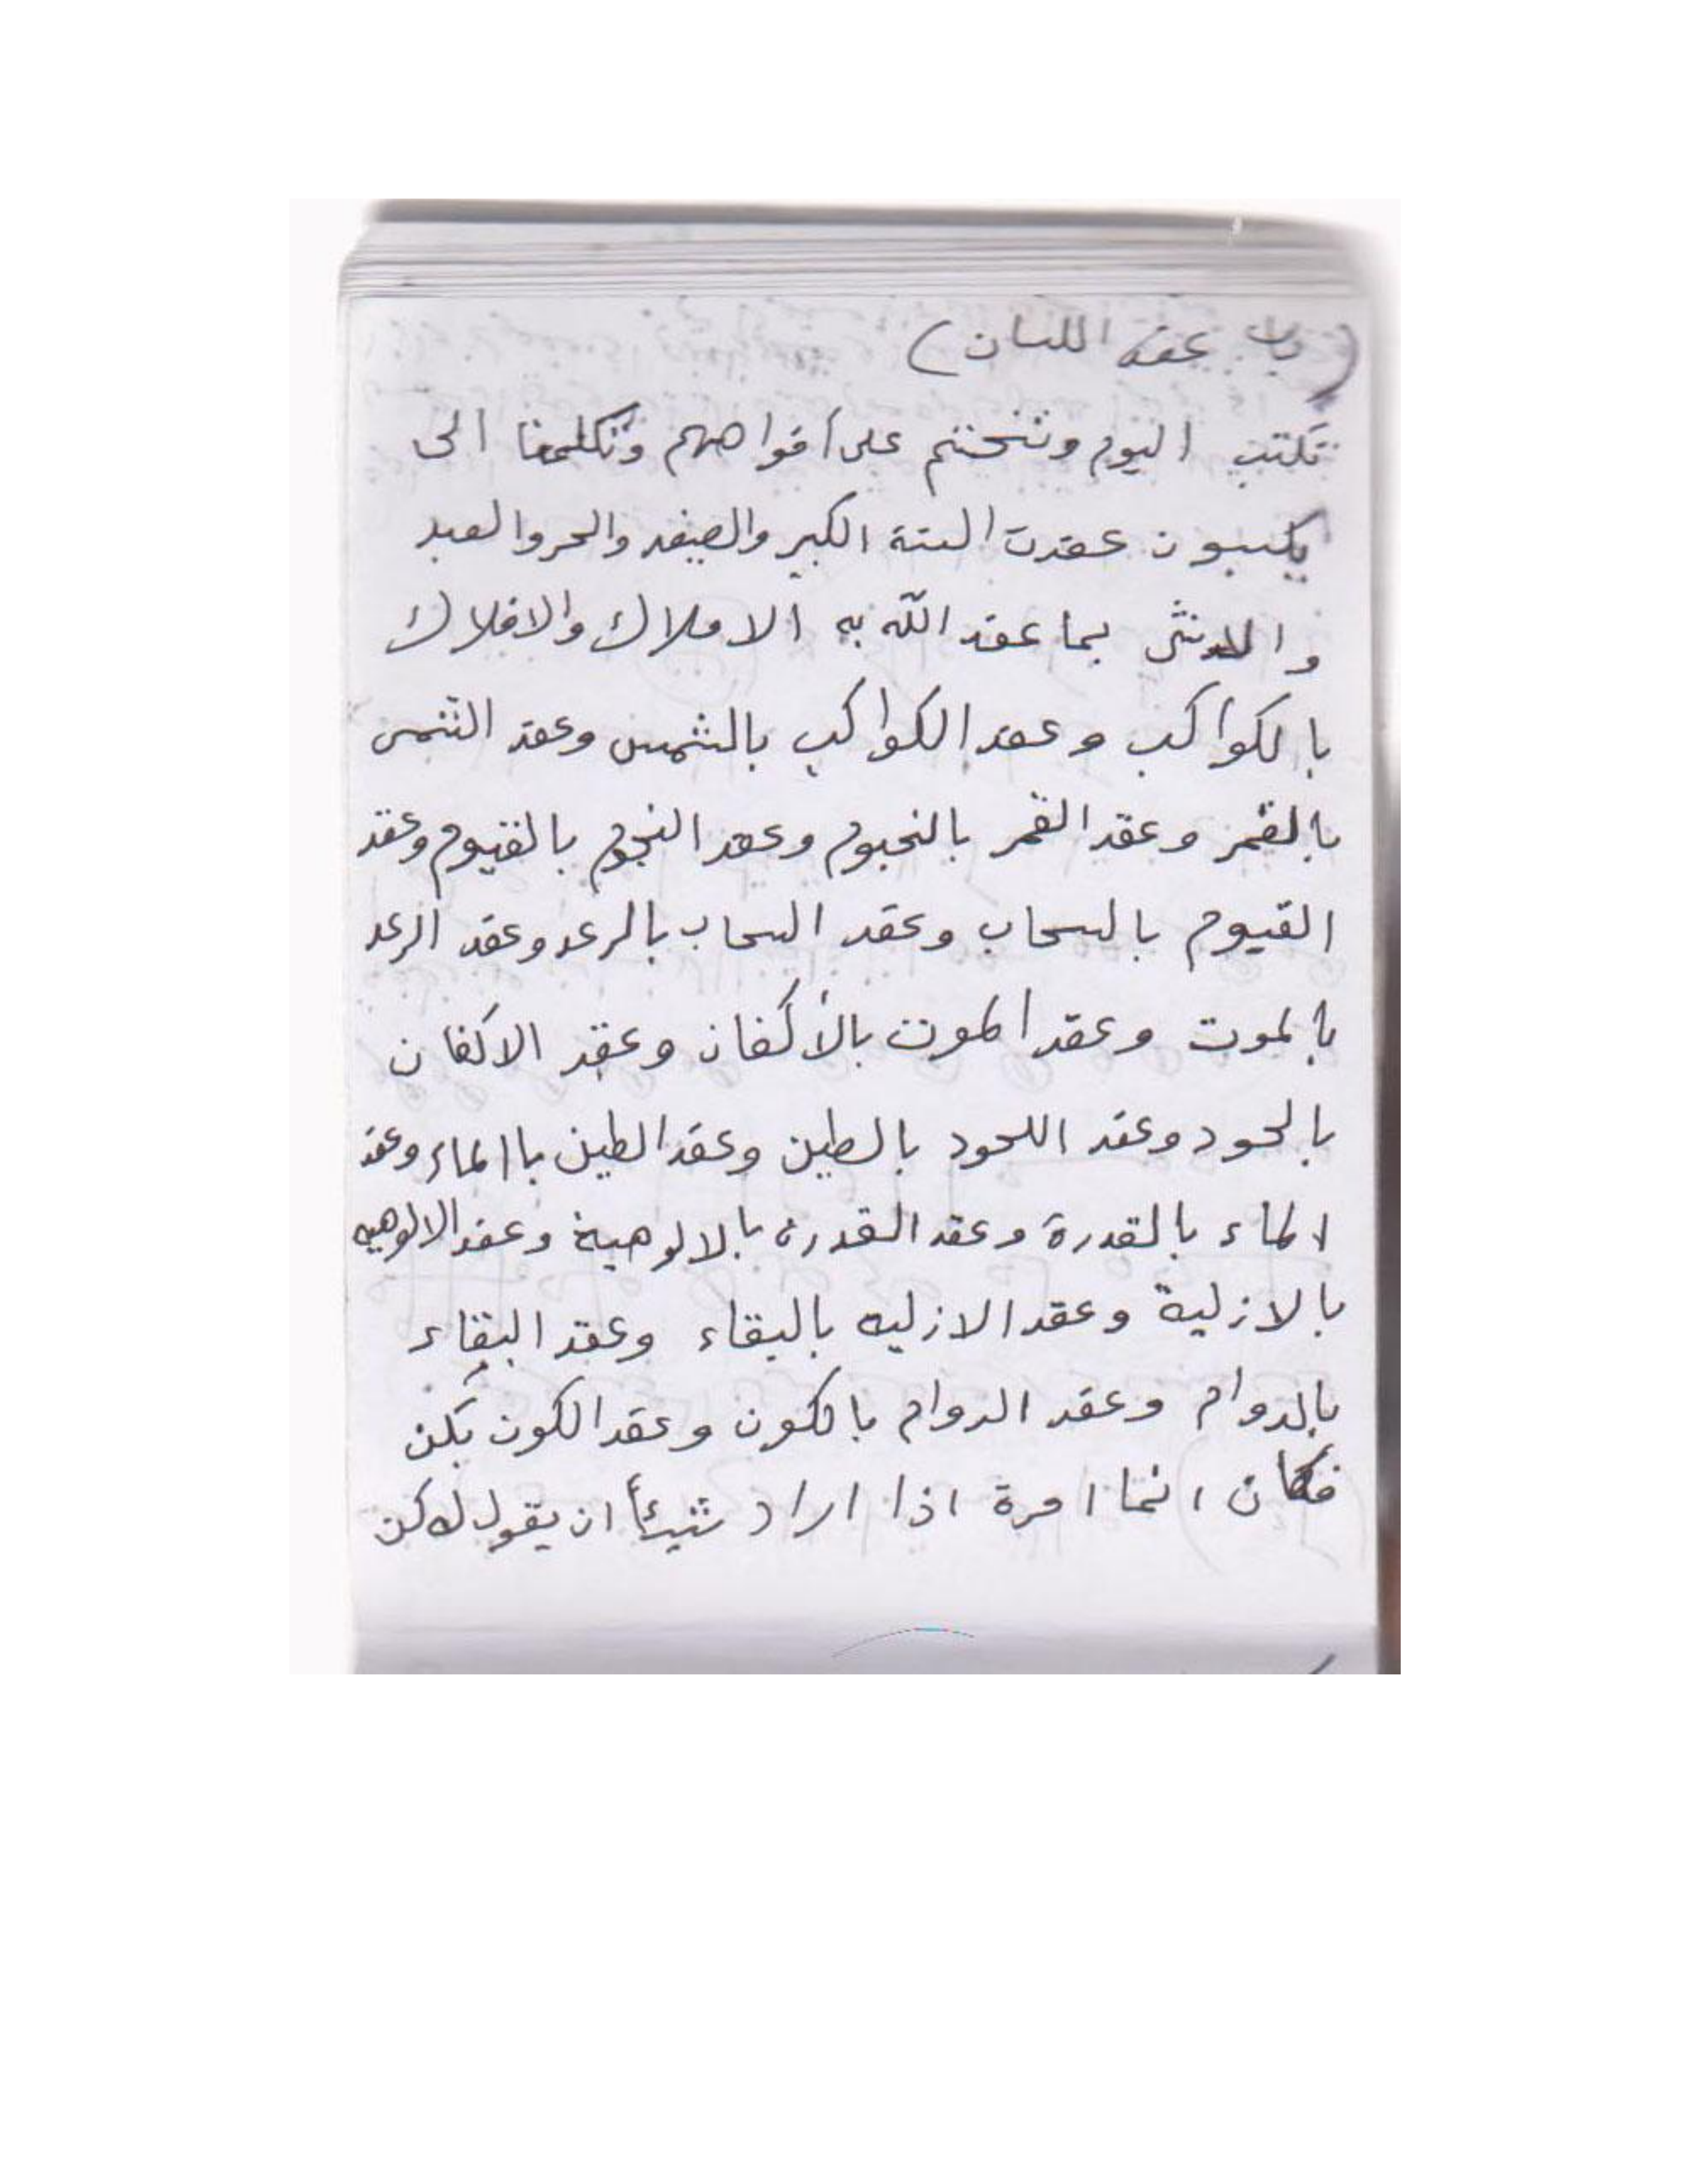 (باب عقد اللسان)
تكتب اليوم ونختم على أفواههم وتكلمنا الى
يكسبون عقدت السنة الكبير والصغير والحر والعبد
والانثى بما عقد الله به الاملاك والافلاك
بالكواكب وعقد الكواكب بالشمس وعقد الشمس
بالقمر وعقد القمر بالنجوم وعقد النجوم بالقيوم وعقد
القيوم بالسحاب وعقد السحاب بالرعد وعقد الرعد
بالموت وعقد الموت بالأكفان وعقد الاكفان
بالحود وعقد اللحود بالطين وعقد الطين باالماء وعقد
الماء بالقدرة وعقد القدرة بالالوهية وعقد الالوهيه
بالازلية وعقد الازليه بالبقاء وعقد البقاء
بالدوام وعقد الدوام بالكون وعقد الكون بكن
فكان انما امرة اذا اراد شيئأ ان يقول له كن